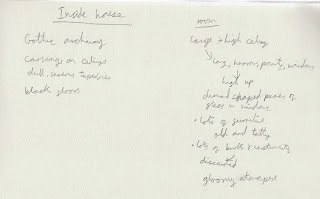 Inside house
Gothic archway
carvings on ceilings
dull, sombre tapestries
black floors
room
large & high ceiling
long, narrow, pointy, windows
high up
diamond shaped panes of
glass in windows.
• lots of furniture
old and tatty
• lots of books & instruments
discarded
gloomy atmosphere